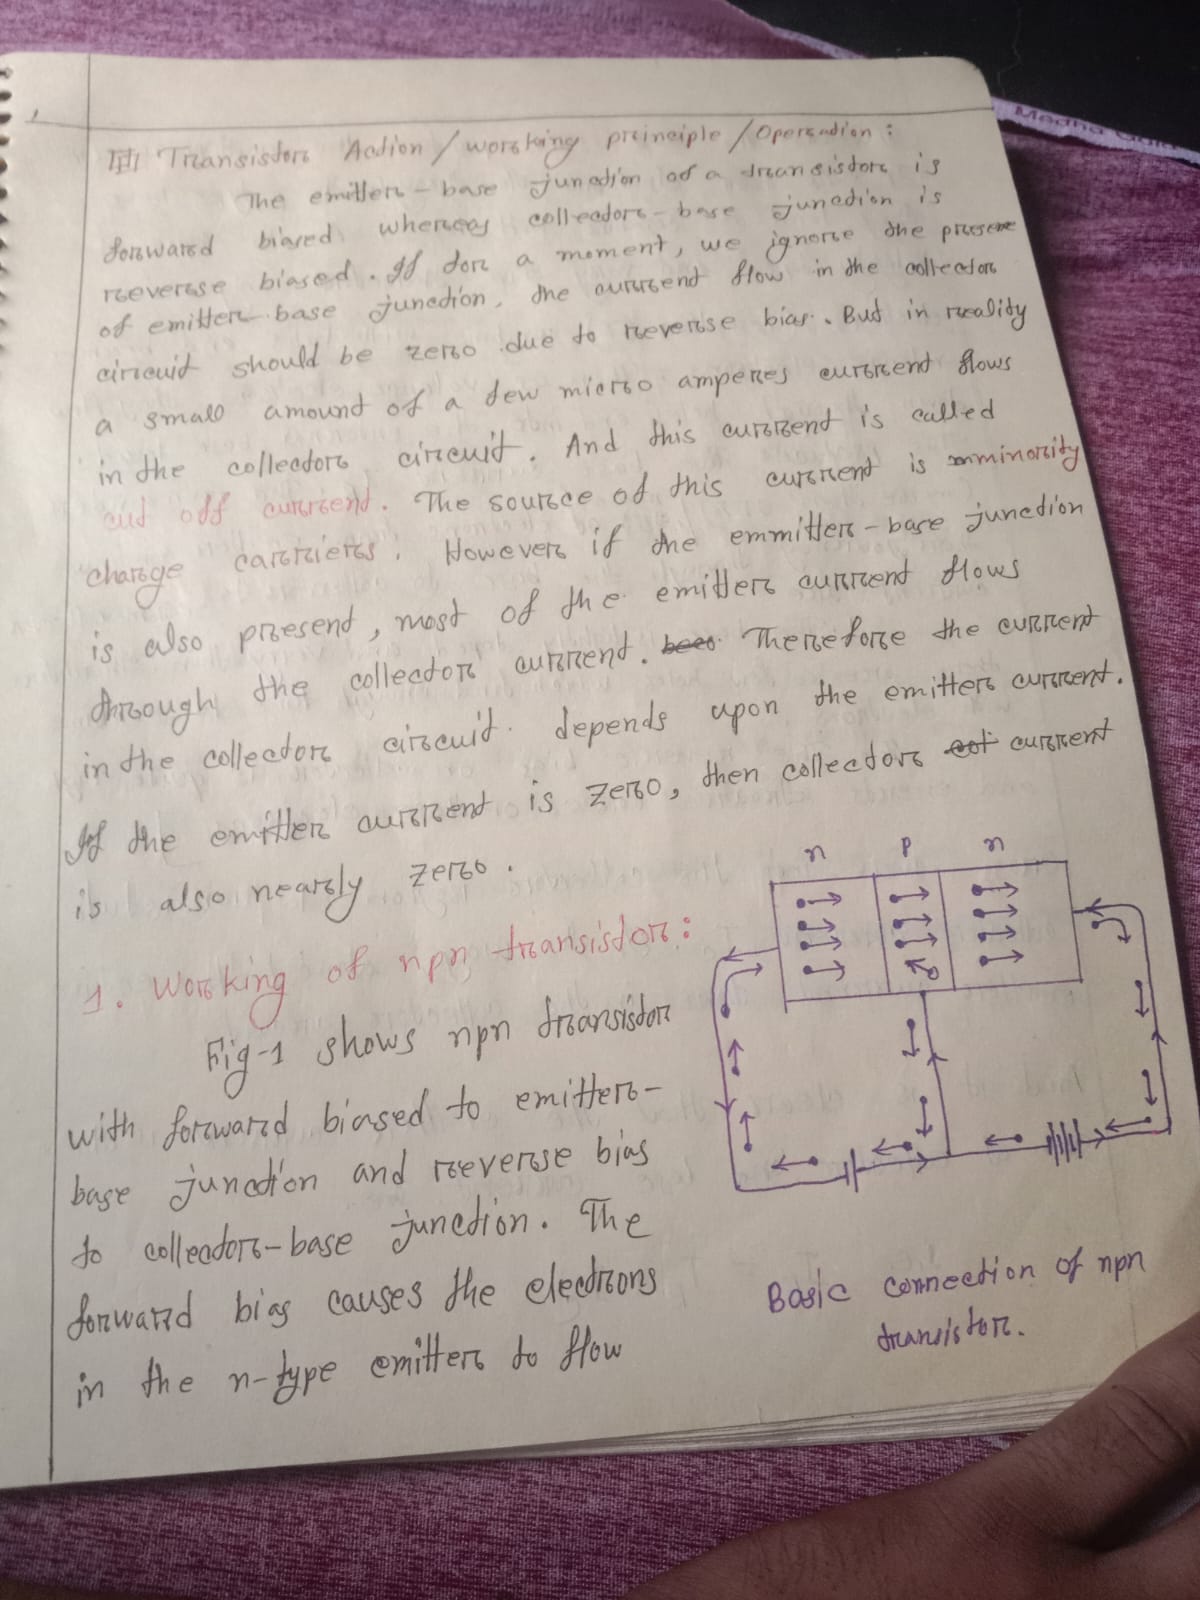 Transistor Action / working principle / Operation :
The emitter-base junction of a transistor is
forward biased whereas collector-base junction is
reverse biased. If for a moment, we ignore the presence
of emitter base junction, the current flow in the collector
circuit should be zero due to reverse bias. But in reality
a small amount of a few micro amperes current flows
in the collector circuit. And this current is called
cut off current. The source of this current is minority
charge carriers. However if the emmitter-base junction
is also present, most of the emitter current flows
through the collector current. Therefore the current
in the collector circuit depends upon the emitter current.
If the emitter current is zero, then collector current
is also nearly zero.
n p n
1. Working of npn transistor:
Fig-1 shows npn transistor
with forward biased to emitter-
base junction and reverse bias
to collector-base junction. The
forward bias causes the electrons
in the n-type emitter to flow
Basic connection of npn
transistor.